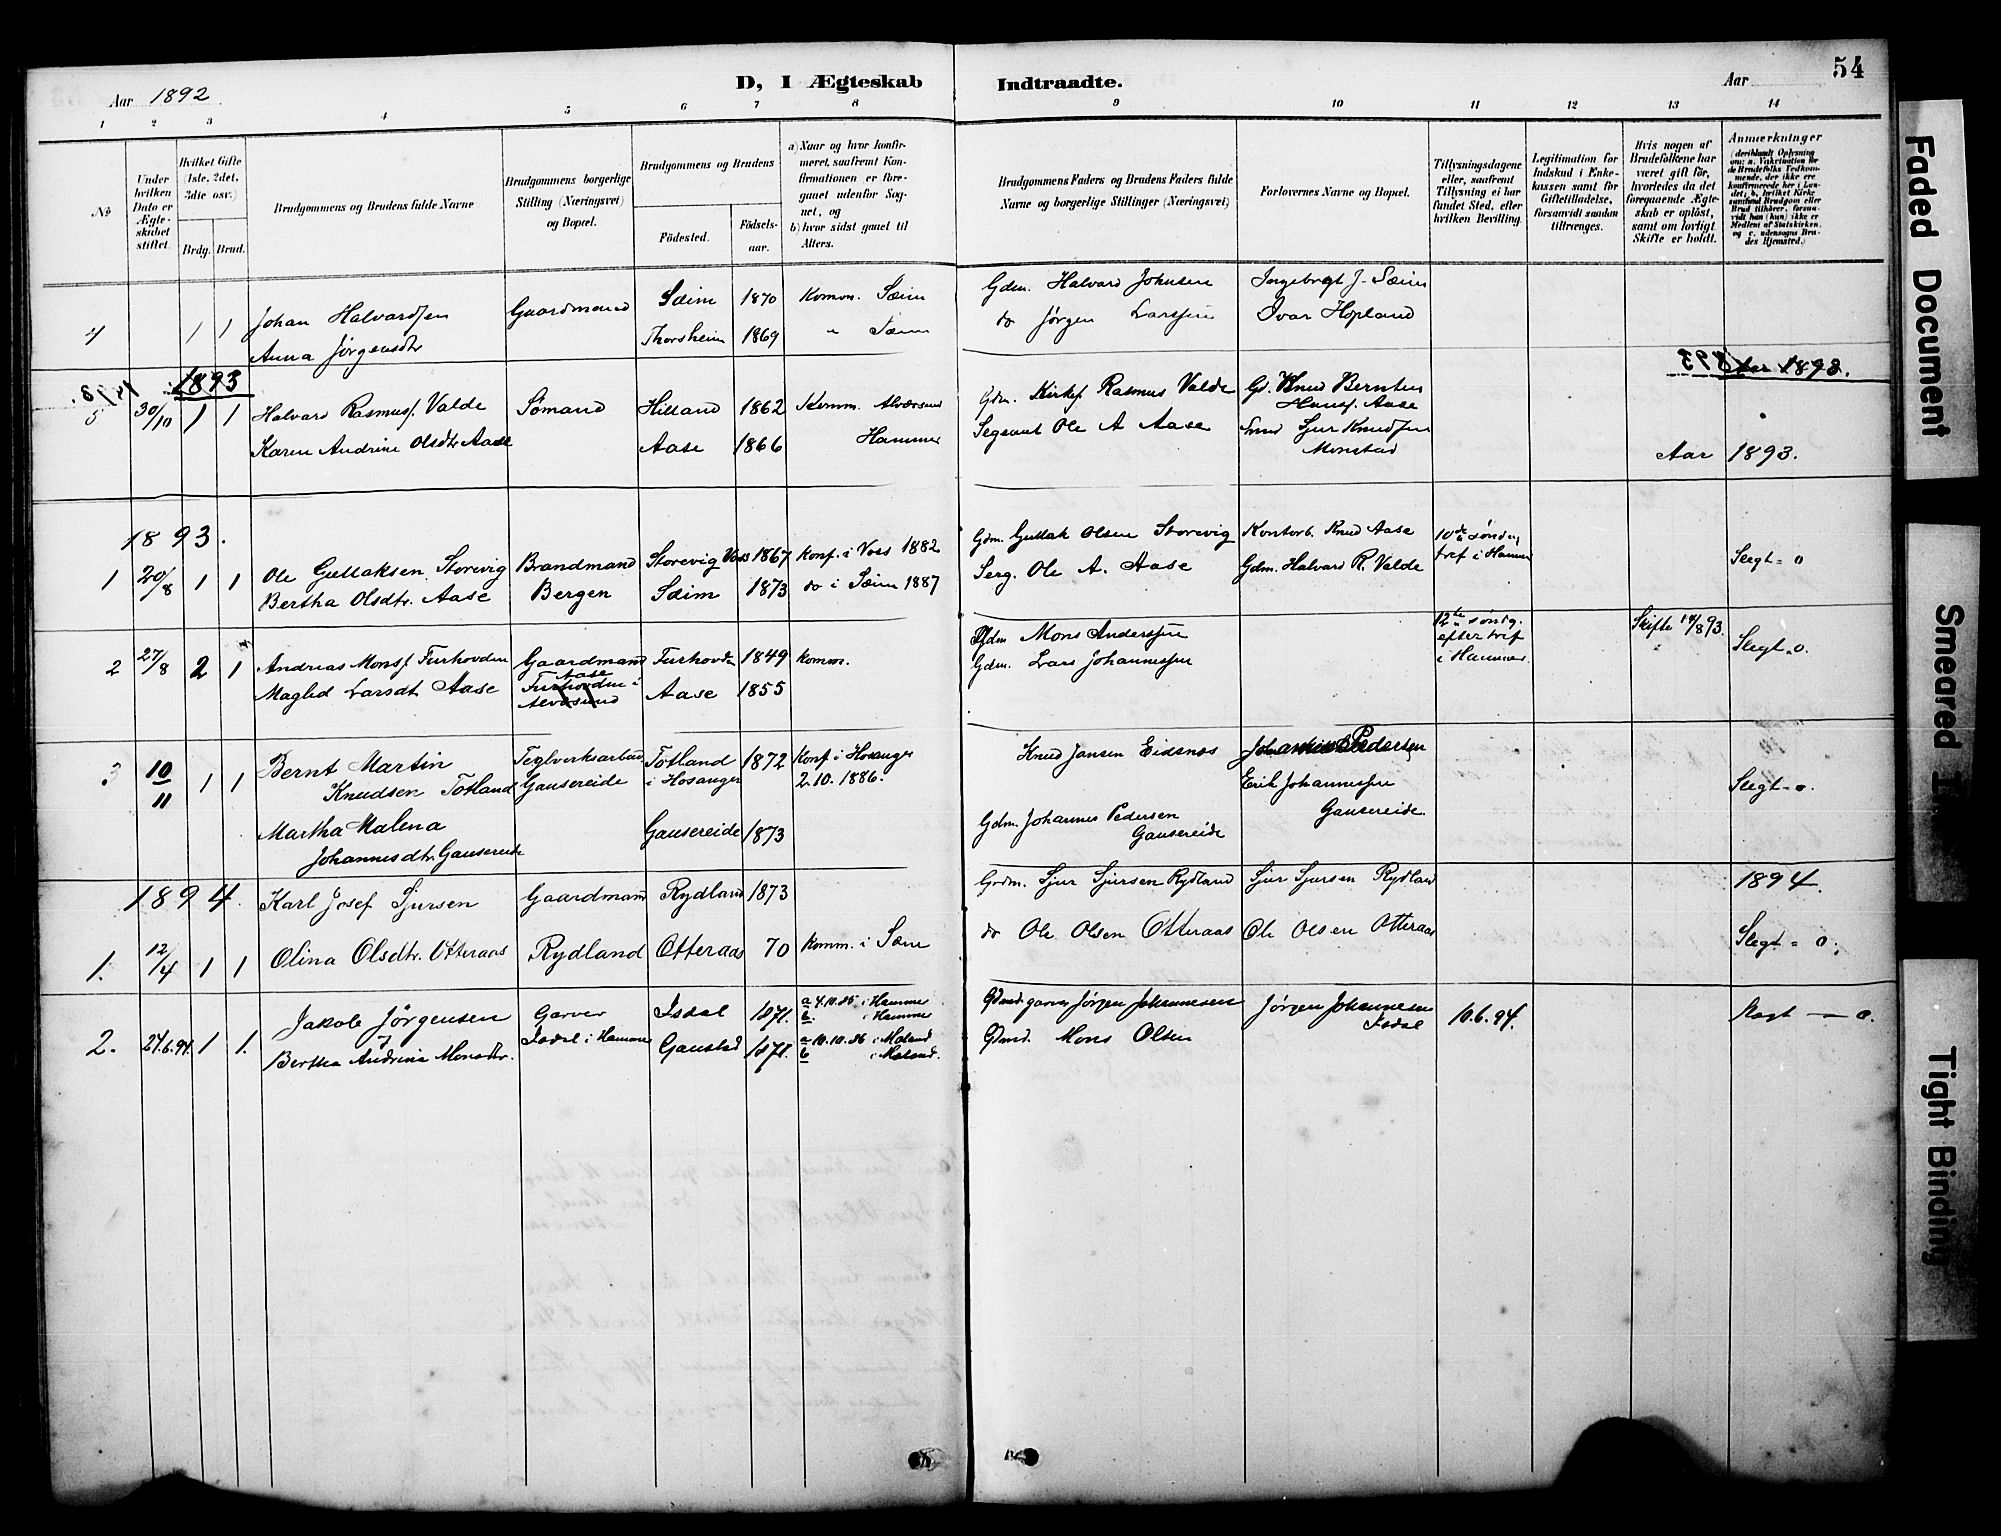 Aar 1892
D, I Ægteskab Indtraadte.
Aar
54
1 2 3 4 5 6 7 8 9 10 11 12 13 14
No
Under hvilken Dato er Ægteskabet stiftet.
Hvilket Gifte (1ste, 2det, 3die osv.)
Brdg. Brud.
Brudgommens og Brudens fulde Navne
Brudgommens borgerlige Stilling (Næringsvei) og Bopæl.
Brudgommens og Brudens
Fødested.
Fødselsaar.
a) Naar og hvor konfirmeret, saafremt Konfirmationen er foregaaet udenfor Sognet, og
b) hvor sidst gaaet til Alters.
Brudgommens Faders og Brudens Faders fulde Navne og borgerlige Stillinger (Næringsvei)
Forlovernes Navne og Bopæl.
Tillysningsdagene eller, saafremt Tillysning ei har fundet Sted, efter hvilken Bevilling.
Legitimation for Indskud i Enkekassen samt for Giftetilladelse, forsaavidt saadan tiltrænges.
Hvis nogen af Brudefolkene har været gift før, hvorledes da det foregaaende Ægteskab er opløst, samt om lovligt Skifte er holdt.
Anmærkninger (deriblandt Oplysning om: a. Vakcination for de Brudefolks Vedkommende, der ikke ere konfirmerede her i Landet; b. hvilket Kirkesamfund Brudgom eller Brud tilhører, forsaavidt han (hun) ikke er Medlem af Statskirken, og c. udensogns Brudes Hjemsted.)
4 1 1 Johan Halvardsen Gaardmand Sæim 1870 Komm. Sæim Gdm. Halvard Johnsen Ingebregt J. Sæim
Anna Jørgensdtr Thorsheim 1869 " Sæim do Jørgen Larssen Ivar Hopland
1893
Aar 1893.
5 30/10 1 1 Halvard Rasmusf. Valde Sømand Hilland 1862 Komm. Alversund Gdm. Kirkes. Rasmus Valde Gd. Knud Berntsen
Hansf. Aase
Karen Andrine Olsdtr Aase Aase 1866 Hammer Sergeant Ole A Aase Sjur Knudsen
Monstad
Aar 1893.
1893.
1 20/8 1 1 Ole Gullaksen Storevig Brandmand Storevig Voss 1867 Konf. i Voss 1882 Gdm. Gullak Olsen Storevig Kontorb. Knud Aase 10de sønd. e. tref i Hammer Slegt = 0
Bertha Olsdtr. Aase Bergen Sæim 1873 do i Sæim 1887 Serg. Ole A. Aase Gdm. Halvard R. Valde
2 27/8 2 1 Andreas Monsf. Furhovden Gaardmand Furhovden 1849 Komm. Gdm Mons Anderssen 12te søndg. efter tref i Hammer. Skifte 14/8 93. Slegt = 0.
Aase
Magled Larsdtr Aase Furhovden i Alversund Aase 1855 Gdm. Lars Johannessen
3 10/11 1 1 Bernt Martin Teglverksarbeid Totland 1872 Konf. i Hosanger Knud Jansen Eidsnes Johannes Pedersen
Knudsen Totland Gausereide i Hosanger 2.10.1886. Erik Johannessen Slegt = 0.
Gausereide.
Martha Malena Gausereide 1873 Gdm. Johannes Pedersen
Gausereide
Johannesdtr. Gausereide
1894. Karl Josef Sjursen Gaardmand Rydland 1873 Grdm. Sjur Sjursen Rydland Sjur Sjursen Rydland 1894.
1. 12/4 1 1 Olina Olsdtr. Otteraas Rydland Otteraas 70 Komm. i Sæm do Ole Olsen Otteraas Ole Olsen Otteraas Slegt = 0.
2. 24.6.94 1 1. Jakob Jørgensen Garver Isdal 1871. a 4.10.85 i Hammer b. i Hammer Gdmd. garver Jørgen Johannesen Jørgen Johannesen Isdal 10.6.94. Slægt — 0.
Bertha Andrine Monsdtr. Isdal i Hammer Gaustad 1871. a 10.10.86 i Mæland b i Mæland. Gdmd. Mons Olsen
Faded Document
Smeared
Tight Binding